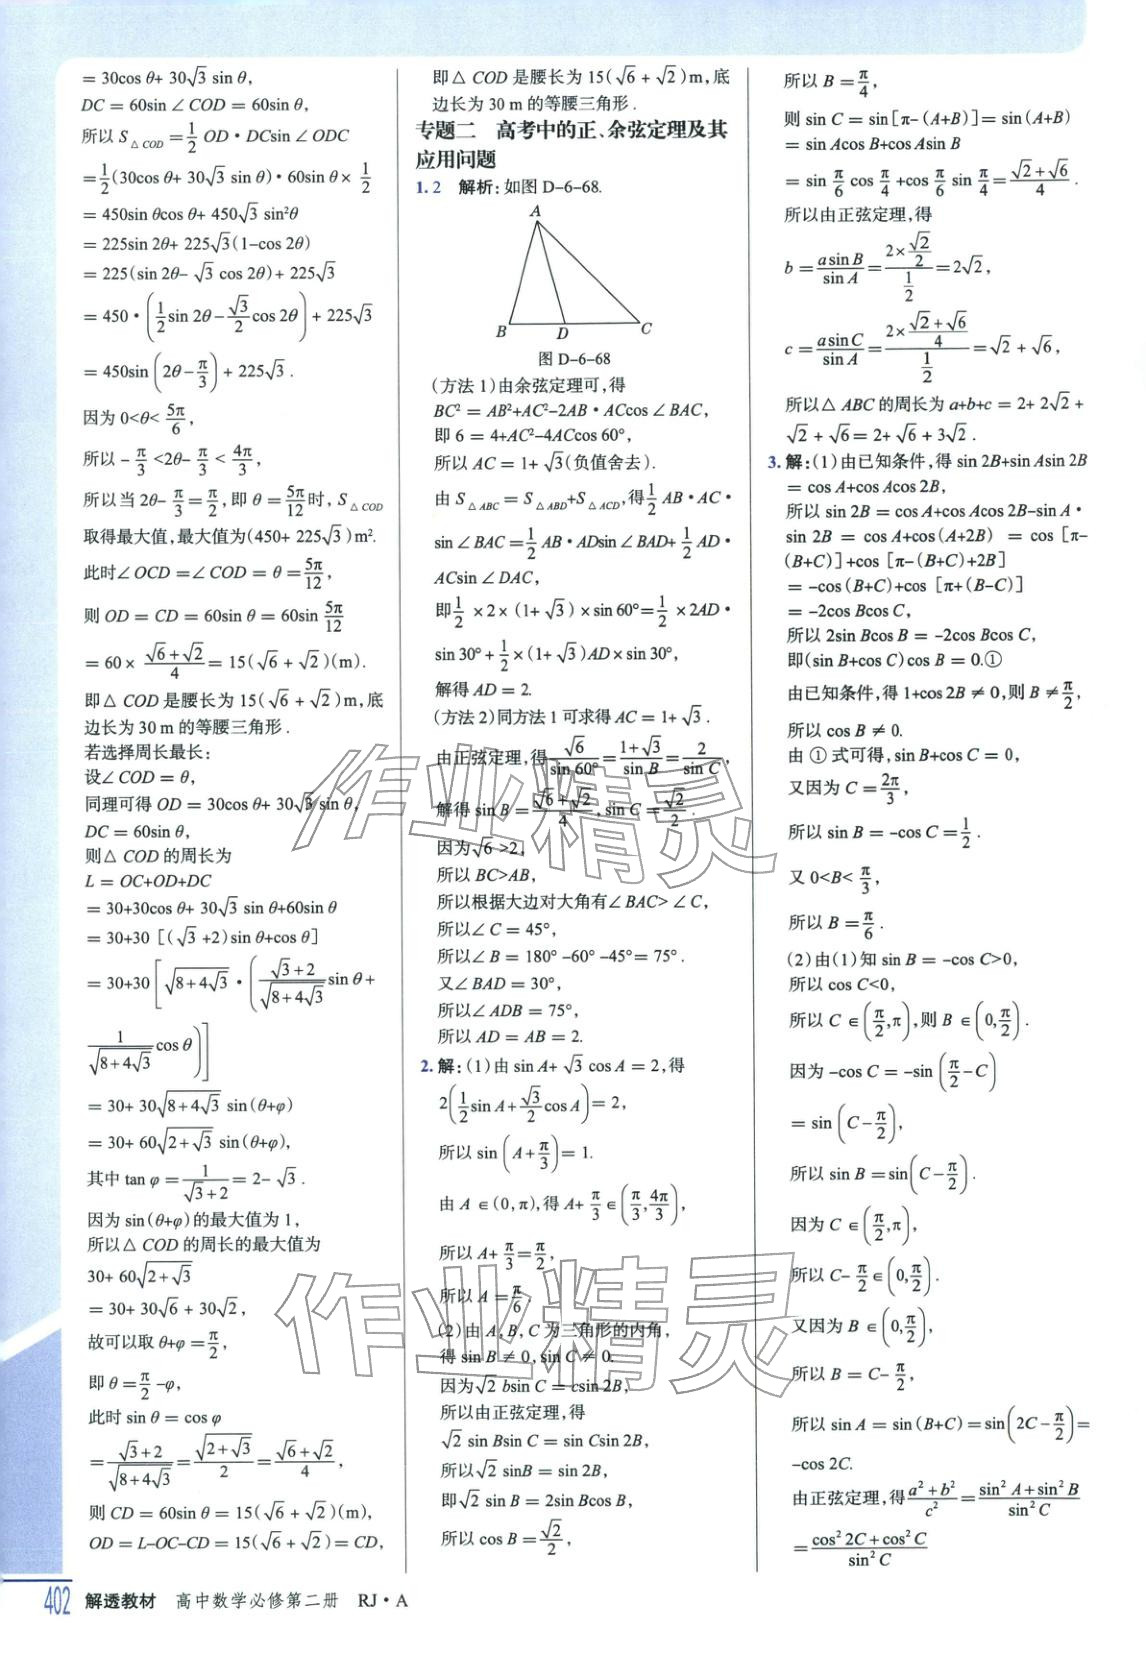 = 30cos θ+ 30√3 sin θ,
DC = 60sin ∠ COD = 60sin θ,
所以 S△COD = 1/2 OD·DCsin ∠ ODC
= 1/2(30cos θ+ 30√3 sin θ)·60sin θ× 1/2
= 450sin θcos θ+ 450√3 sin²θ
= 225sin 2θ+ 225√3(1-cos 2θ)
= 225(sin 2θ- √3 cos 2θ)+ 225√3
= 450·(1/2 sin 2θ- √3/2 cos 2θ) + 225√3
= 450sin(2θ- π/3) + 225√3 .
因为 0<θ< 5π/6,
所以 - π/3 <2θ- π/3 < 4π/3,
所以当 2θ- π/3 = π/2,即 θ = 5π/12时, S△COD
取得最大值,最大值为(450+ 225√3)m².
此时∠ OCD =∠ COD = θ = 5π/12,
则 OD = CD = 60sin θ = 60sin 5π/12
= 60× (√6+√2)/4 = 15(√6 + √2)(m).
即△ COD 是腰长为 15(√6 + √2)m,底
边长为 30 m 的等腰三角形 .
若选择周长最长:
设∠ COD = θ,
同理可得 OD = 30cos θ+ 30√3 sin θ,
DC = 60sin θ,
则△ COD 的周长为
L = OC+OD+DC
= 30+30cos θ+ 30√3 sin θ+60sin θ
= 30+30 [(√3 +2)sin θ+cos θ]
= 30+30 [√(8+4√3) · ((√3+2)/√(8+4√3) sin θ +
1/√(8+4√3) cos θ)]
= 30+ 30√(8+4√3) sin(θ+φ)
= 30+ 60√(2+√3) sin(θ+φ),
其中 tan φ = 1/(√3+2) = 2- √3 .
因为 sin(θ+φ)的最大值为 1,
所以△ COD 的周长的最大值为
30+ 60√(2+√3)
= 30+ 30√6 + 30√2,
故可以取 θ+φ = π/2,
即 θ = π/2 -φ,
此时 sin θ = cos φ
= (√3+2)/√(8+4√3) = √(2+√3)/2 = (√6+√2)/4,
则 CD = 60sin θ = 15(√6 + √2)(m),
OD = L-OC-CD = 15(√6 + √2)= CD,
即△ COD 是腰长为 15(√6 + √2)m,底
边长为 30 m 的等腰三角形 .
专题二 高考中的正、余弦定理及其
应用问题
1. 2 解析:如图 D-6-68.
A
B D C
图 D-6-68
(方法 1)由余弦定理可,得
BC² = AB²+AC²-2AB·ACcos ∠ BAC,
即 6 = 4+AC²-4ACcos 60°,
所以 AC = 1+ √3(负值舍去).
由 S△ABC = S△ABD+S△ACD,得1/2 AB·AC·
sin ∠ BAC = 1/2 AB·ADsin ∠ BAD+ 1/2 AD·
ACsin ∠ DAC,
即1/2 ×2× (1+ √3) ×sin 60°= 1/2 ×2AD·
sin 30°+ 1/2 ×(1+ √3)AD×sin 30°,
解得 AD = 2.
(方法 2)同方法 1 可求得 AC = 1+ √3 .
由正弦定理,得 √6/sin 60° = (1+√3)/sin B = 2/sin C,
解得 sin B = (√6+√2)/4, sin C = √2/2 .
因为√6 >2,
所以 BC>AB,
所以根据大边对大角有∠ BAC> ∠ C,
所以∠ C = 45°,
所以∠ B = 180° -60° -45°= 75° .
又∠ BAD = 30°,
所以∠ ADB = 75°,
所以 AD = AB = 2.
2. 解:(1)由 sin A+ √3 cos A = 2,得
2(1/2 sin A+ √3/2 cos A)= 2,
所以 sin(A+ π/3)= 1.
由 A ∈(0,π),得 A+ π/3 ∈(π/3, 4π/3),
所以 A+ π/3 = π/2,
所以 A = π/6 .
(2)由 A, B, C 为三角形的内角,
得 sin B ≠ 0, sin C ≠ 0.
因为√2 bsin C = csin 2B,
所以由正弦定理,得
√2 sin Bsin C = sin Csin 2B,
所以√2 sinB = sin 2B,
即√2 sin B = 2sin Bcos B,
所以 cos B = √2/2,
所以 B = π/4,
则 sin C = sin[π-(A+B)]= sin(A+B)
= sin Acos B+cos Asin B
= sin π/6 cos π/4 +cos π/6 sin π/4 = (√2+√6)/4 .
所以由正弦定理,得
b = asin B/sin A = (2× √2/2)/(1/2) = 2√2,
c = asin C/sin A = (2× (√2+√6)/4)/(1/2) = √2 + √6,
所以△ ABC 的周长为 a+b+c = 2+ 2√2 +
√2 + √6= 2+ √6 + 3√2 .
3. 解:(1)由已知条件,得 sin 2B+sin Asin 2B
= cos A+cos Acos 2B,
所以 sin 2B = cos A+cos Acos 2B-sin A·
sin 2B = cos A+cos(A+2B) = cos [π-
(B+C)]+cos [π-(B+C)+2B]
= -cos(B+C)+cos [π+(B-C)]
= -2cos Bcos C,
所以 2sin Bcos B = -2cos Bcos C,
即(sin B+cos C)cos B = 0.①
由已知条件,得 1+cos 2B ≠ 0,则 B ≠ π/2,
所以 cos B ≠ 0.
由 ① 式可得, sin B+cos C = 0,
又因为 C = 2π/3,
所以 sin B = -cos C = 1/2 .
又 0<B< π/3,
所以 B = π/6 .
(2)由(1)知 sin B = -cos C>0,
所以 cos C<0,
所以 C ∈(π/2,π),则 B ∈(0, π/2).
因为 -cos C = -sin(π/2-C)
= sin(C- π/2),
所以 sin B = sin(C- π/2).
因为 C ∈(π/2,π),
所以 C- π/2 ∈(0, π/2).
又因为 B ∈(0, π/2),
所以 B = C- π/2,
所以 sin A = sin(B+C)= sin(2C- π/2)=
-cos 2C.
由正弦定理,得(a²+b²)/c² = (sin² A+sin² B)/sin² C
= (cos² 2C+cos² C)/sin² C
作业精灵
作业精灵
402 解透教材 高中数学必修第二册 RJ·A